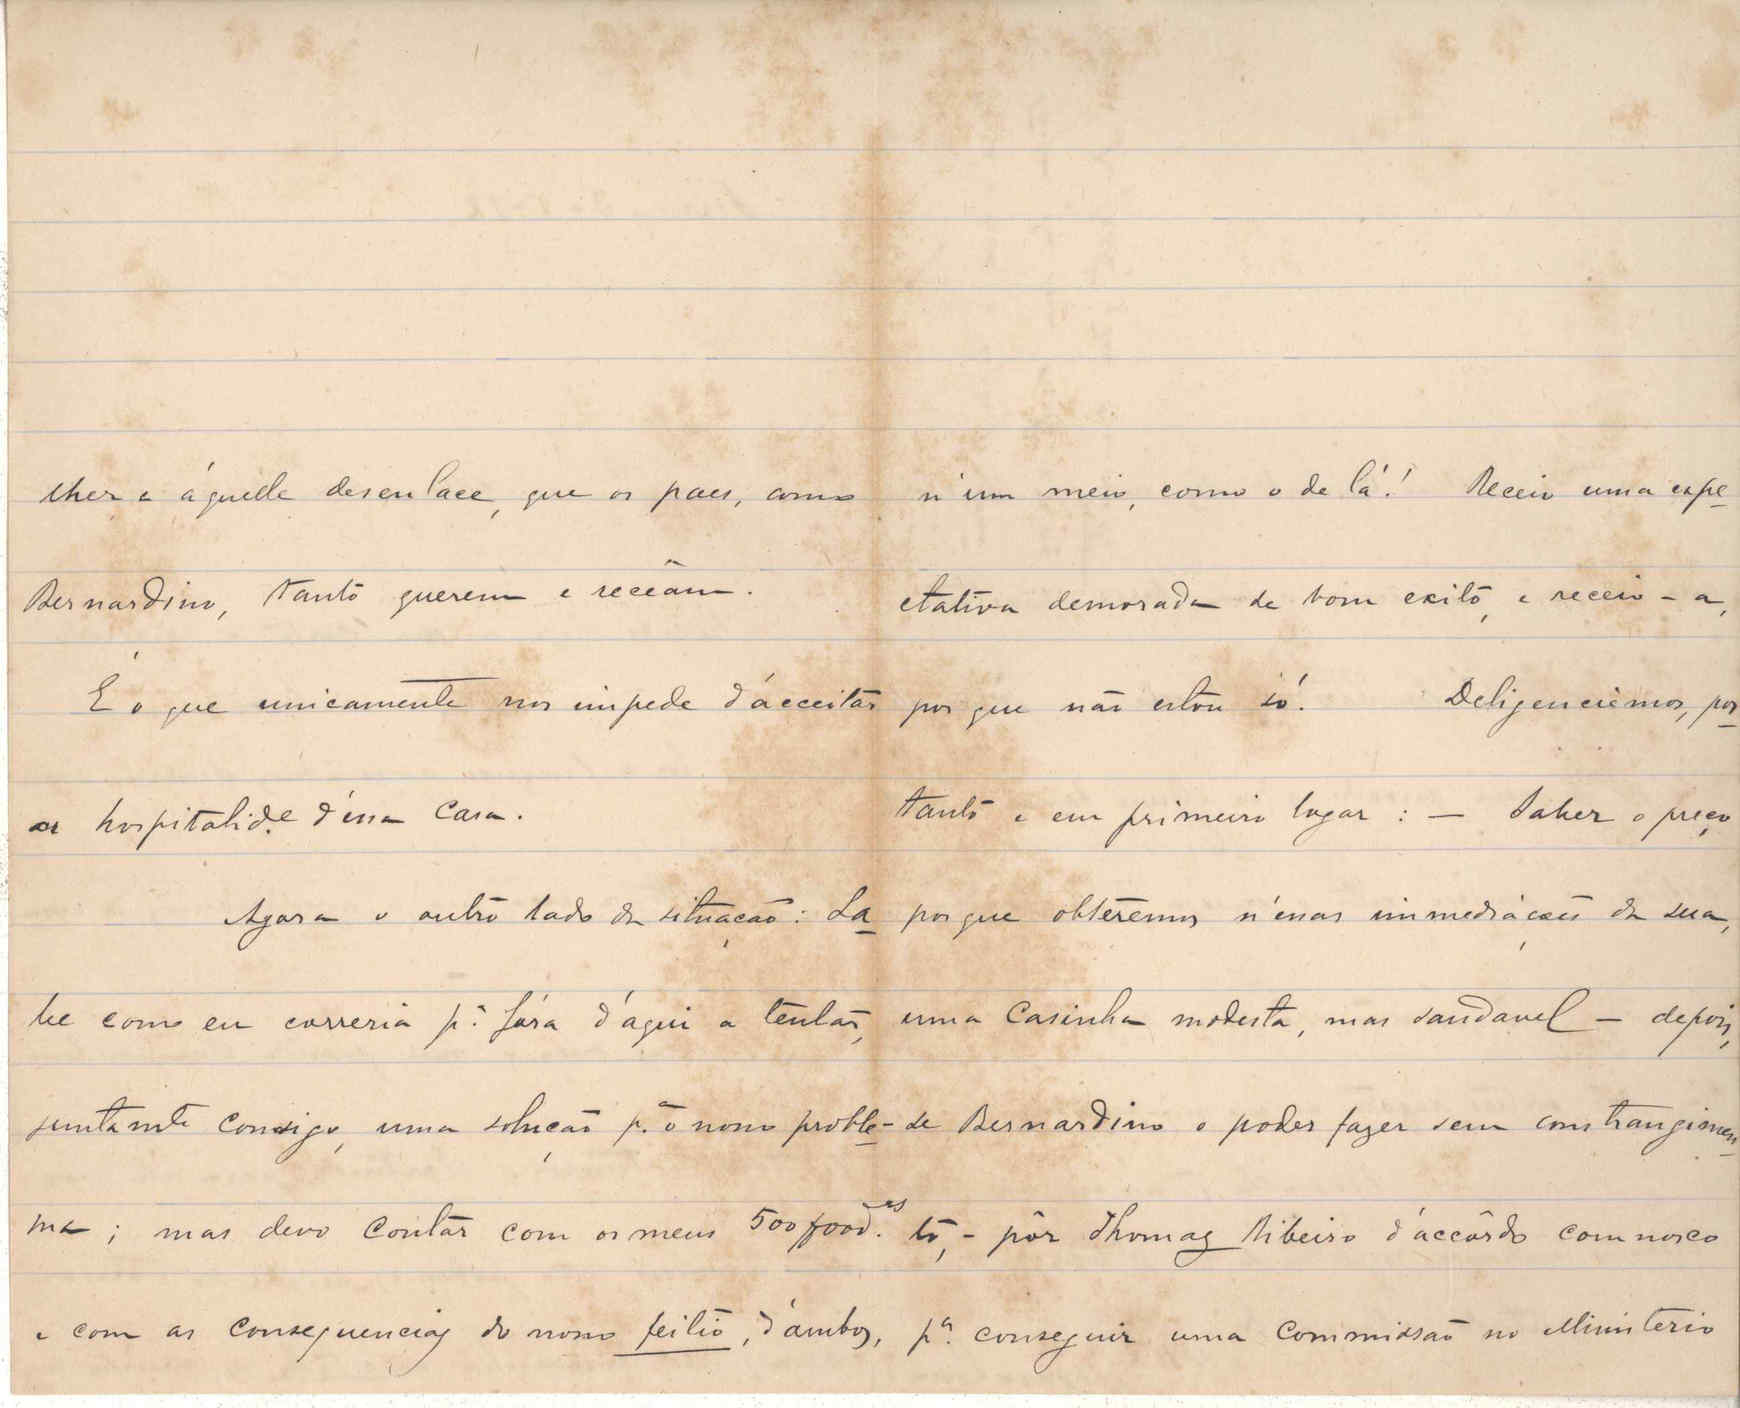 lher e áquelle desenlace, que os paes, como
Bernardino, tanto querem e receiam.
É o que unicamente nos impede d'acceitar
a hospitalid.e d'essa casa.
Agora o outro lado da situação: Sa
be como eu correria p.ª fóra d'aqui a tentar,
juntam.te comsigo, uma solução p.ª o nosso proble-
ma; mas devo contar com os meus
e com as consequencias do nosso feitio, d'ambos,
n'um meio, como o de lá! Receio uma expe
ctativa demorada de bom exito, e receio-a,
porque não estou só! Deligenciêmos, por
tanto e em primeiro logar: — Saber o preço
porque obterêmos n'essas immediações da sua,
uma casinha modesta, mas saudavel — depois,
se Bernardino o poder fazer sem constrangimen
to, - pôr Thomaz Ribeiro d'accôrdo comnosco
p.ª conseguir uma commissão no Ministerio